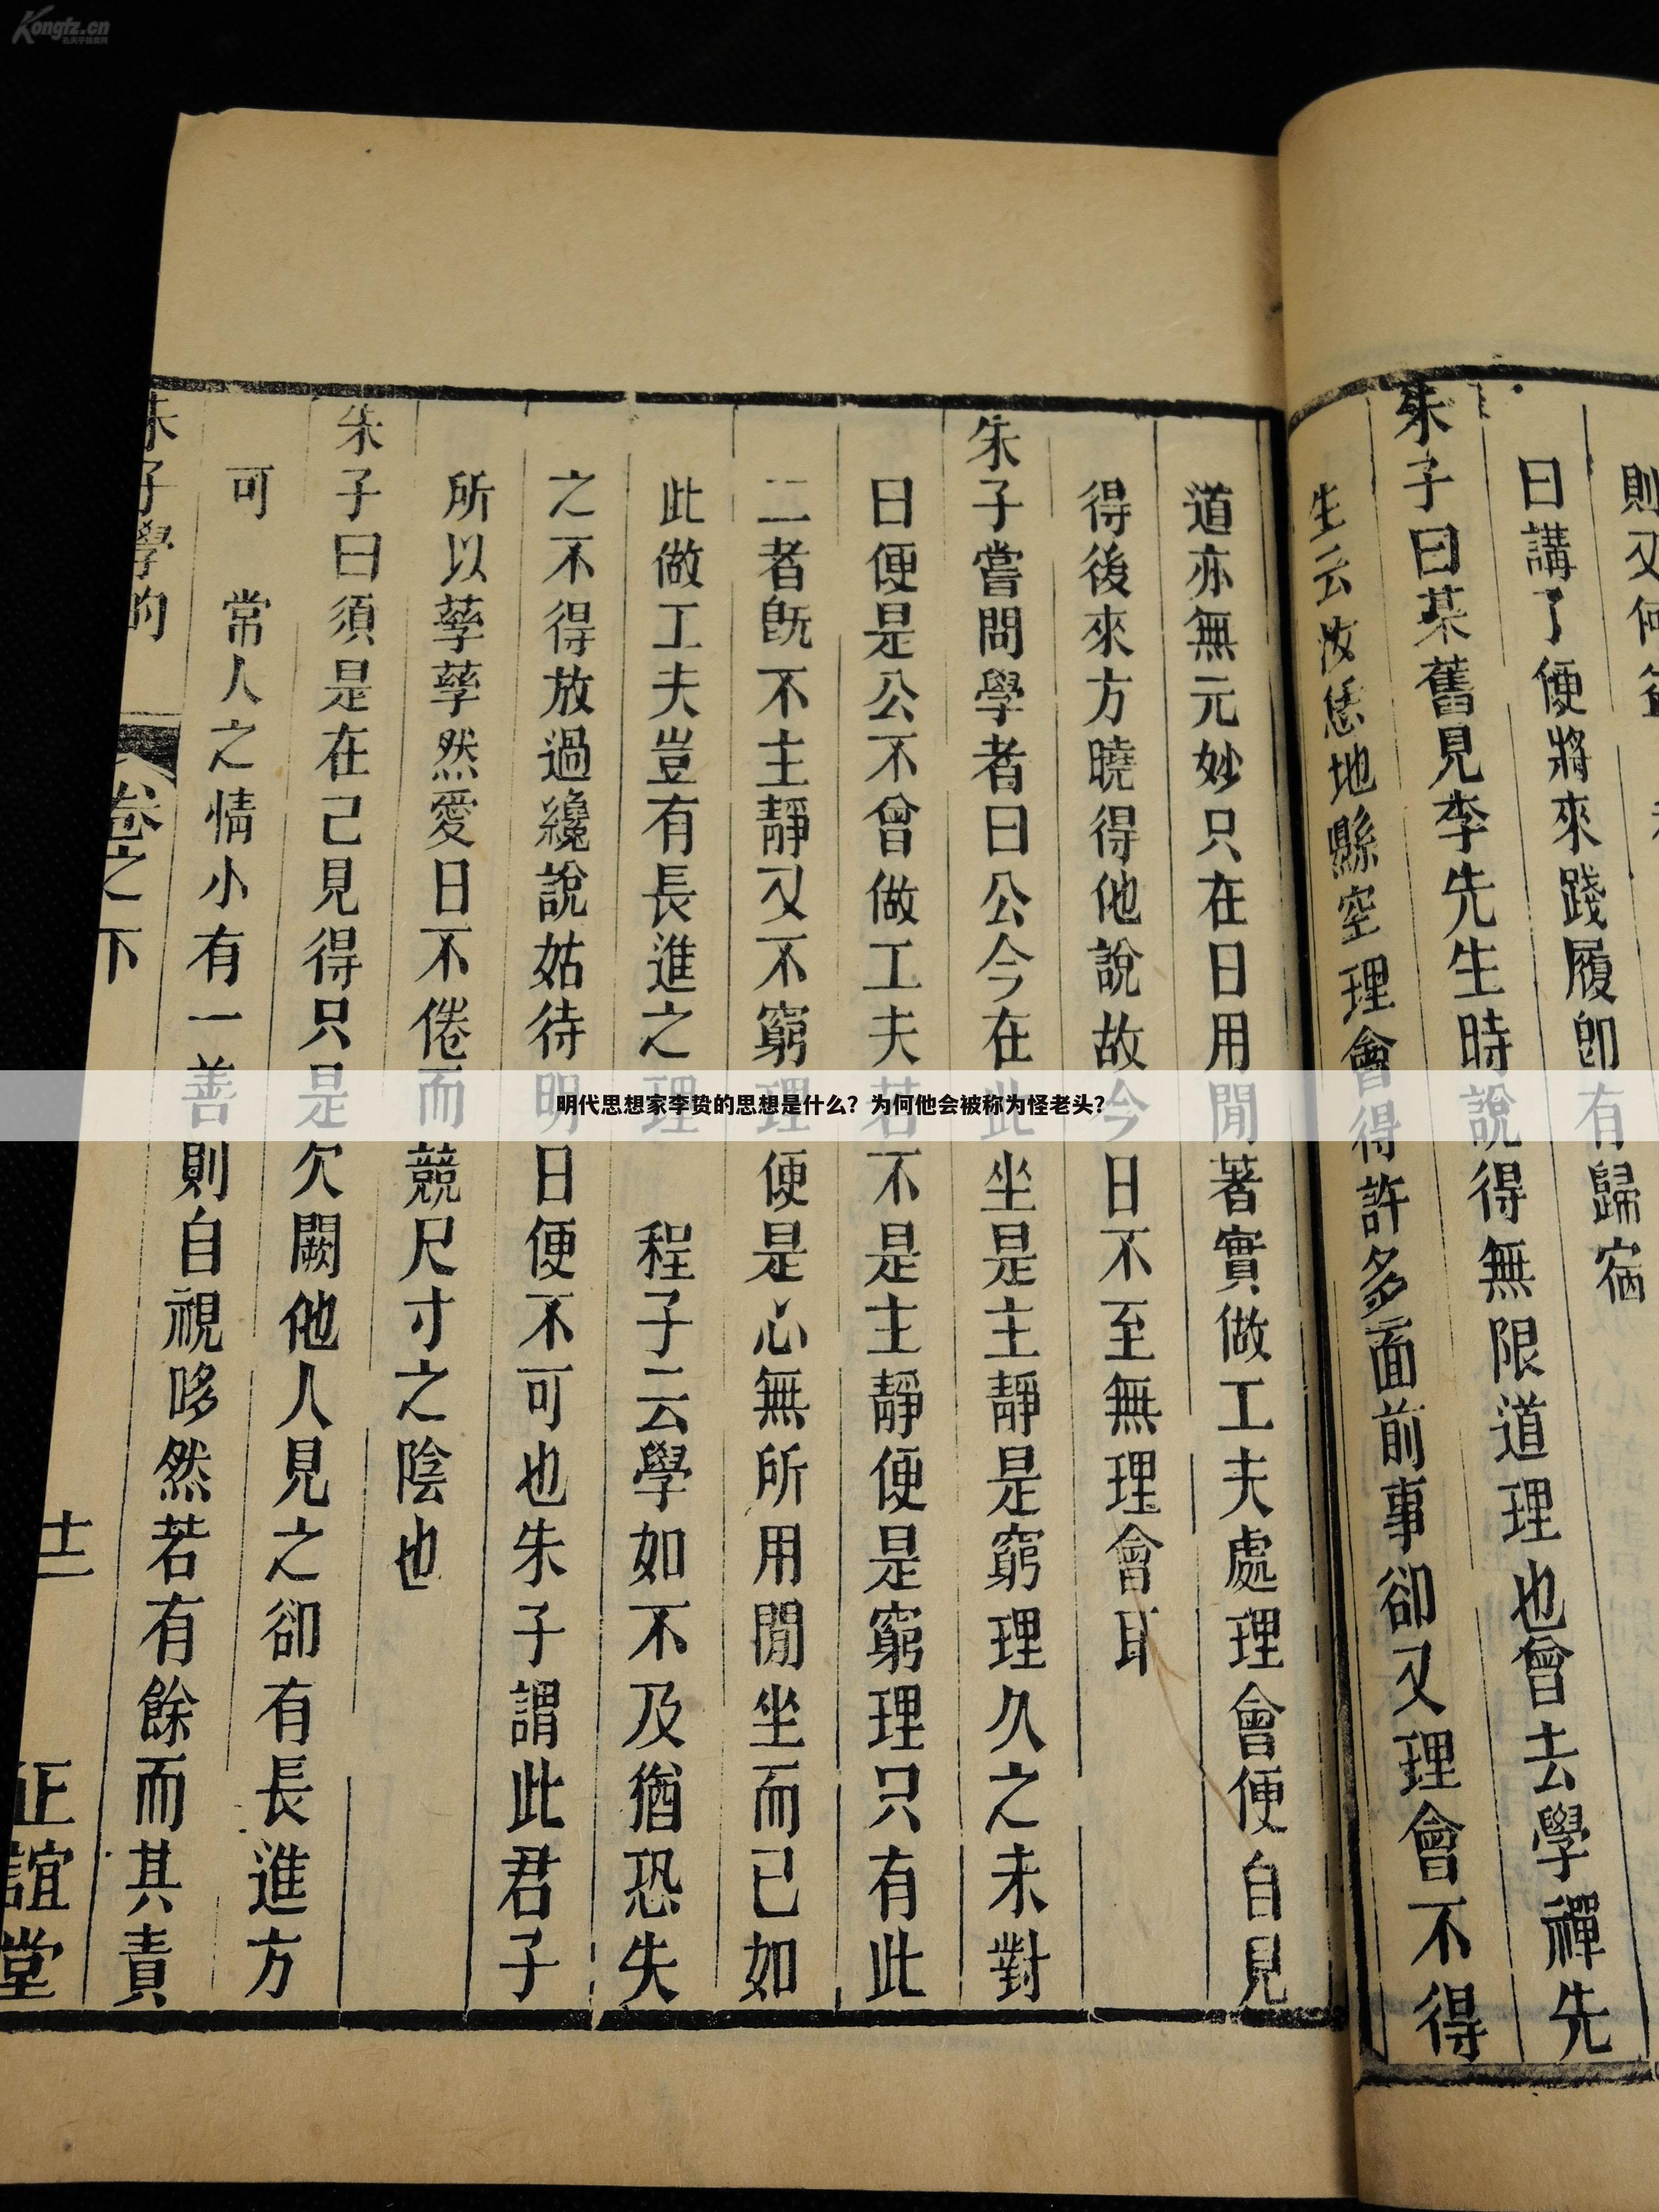 Kongfz.cn
則又何
曰講了便將來踐履卽有歸宿
朱子曰某舊見李先生時說得無限道理也曾去學禪先
生云汝恁地縣空理會得許多面前事卻又理會不得
道亦無元妙只在日用閒著實做工夫處理會便自見
得後來方曉得他說故今日不至無理會耳
朱子嘗問學者曰公今在此坐是主靜是窮理久之未對
曰便是公不曾做工夫若不是主靜便是窮理只有此
二者旣不主靜又不窮理便是心無所用閒坐而已如
此做工夫豈有長進之理 程子云學如不及猶恐失
之不得放過纔說姑待明日便不可也朱子謂此君子
所以孳孳然愛日不倦而競尺寸之陰也
朱子曰須是在己見得只是欠闕他人見之卻有長進方
可 常人之情小有一善則自視哆然若有餘而其責
朱子學的 卷之下 十二 正誼堂
明代思想家李贽的思想是什么？为何他会被称为怪老头？